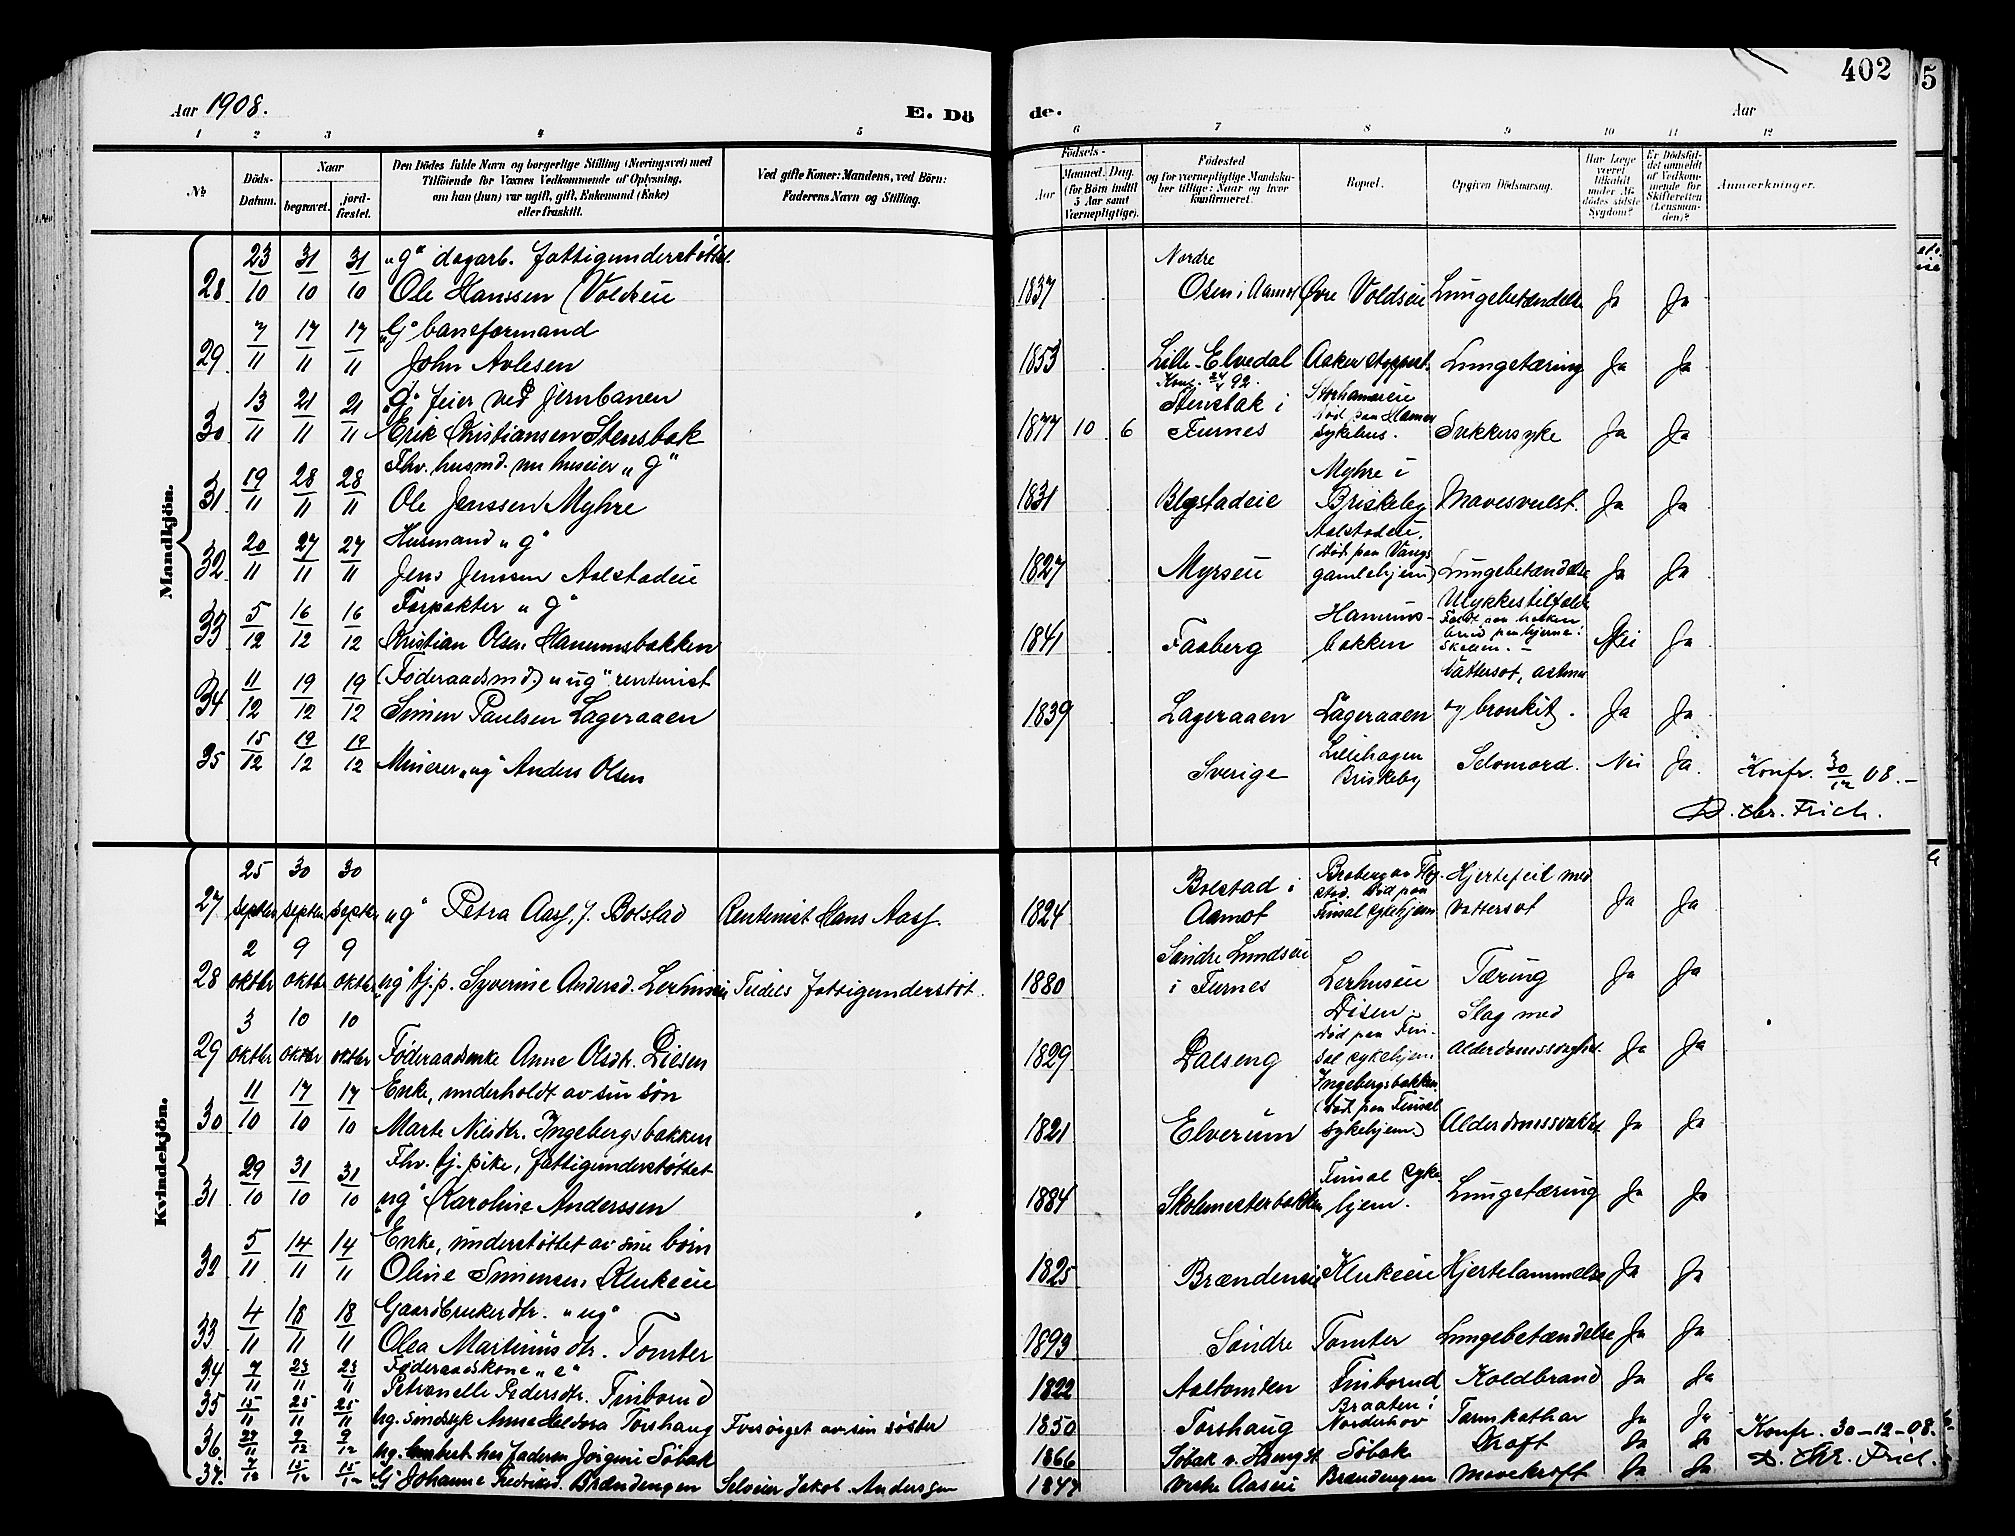 402
5
Aar 1908.
E. Dö
de.
Aar
1 2 3 4 5 6 7 8 9 10 11 12
No
Döds-Datum.
Naar
begravet.
jord-fæstet.
Den Dödes fulde Navn og borgerlige Stilling (Næringsvei) med
Tilföiende for Voxnes Vedkommende af Oplysning,
om han (hun) var ugift, gift, Enkemand (Enke)
eller fraskilt.
Ved gifte Koner: Mandens, ved Börn:
Faderens Navn og Stilling.
Födsels-
Aar
Maaned. Dag.
(for Börn indtil
5 Aar samt
Værnepligtige).
Födested
og for værnepligtige Mandska-
ber tillige: Naar og hvor
konfirmeret.
Bopæl.
Opgiven Dödsaarsag.
Har Læge
været
tilkaldt
under Af-
dödes sidste
Sygdom?
Er Dödsfal-
det anmeldt
af Vedkom-
mende for
Skifteretten
(Lensman-
den)?
Anmærkninger.
Mandkjön.
28 23/10 31/10 31/10 "g" dagarb. fattigunderstøttet.
Ole Hanssen Voldseie 1837 Nordre Osen i Aamot Øvre Voldseie Lungebetændelse Ja Ja
29 7/11 17/11 17/11 "G" baneformand
John Avlesen 1853 Lille-Elvedal Aaker stoppest. Lungetæring Ja Ja
30 13/11 21/11 21/11 "g" feier ved jernbanen
Erik Christiansen Stensbak 1877 10 6 Konf. 24/4 92. Stensbak i Furnes Storhamareie Død paa Hamar sykehus. Sukkersyke Ja Ja
31 19/11 28/11 28/11 Fhv. husmd. nu huseier "g"
Ole Jenssen Myhre 1831 Blystadeie Myhre i Briskeby Mavesvulst. Ja Ja
32 20/11 27/11 27/11 Husmand "g"
Jens Jenssen Aalstadeie 1827 Myrseie Aalstadeie. (Død paa Vangs gamlehjem) Lungebetændelse Ja Ja
33 5/12 16/12 16/12 Forpakter "g"
Kristian Olsen Hanumsbakken 1841 Faaberg Hanums-bakken Ulykkestilfælde Nei Ja
34 11/12 19/12 19/12 (Føderaadsmd.) "ug" rentenist
Simen Paulsen Lageraaen 1839 Lageraaen Lageraaen Vattersot, astma og bronkit. Ja Ja
35 15/12 19/12 19/12 Minerer "ug" Anders Olsen Sverige Lillehagen Briskeby Selvmord. Nei Ja. Konfr. 30/12 08.-
D. Chr. Frich.
Kvindekjön.
27 25 septbr 30 septbr 30 septbr "ug" Petra Aasf. f. Bolstad Rentenist Hans Aasf. 1824 Bolstad i Aamot Død paa Finsal sykehjem Hjertefeil med Vattersot Ja Ja
28 2 oktbr 9 oktbr 9 oktbr "ug" tj.p. Syverine Andersd. Lerhuseie Tildels fattigunderstøt. 1880 Søndre Lundseie i Furnes Lerhuseie Tæring Ja Ja
29 3 oktbr 10 oktbr 10 oktbr Føderaadsenke Anne Olsdtr. Disen 1829 Dalseng Disen. Død paa Fin-sal sykehjem Slag med Alderdomssvaghet. Ja Ja
30 11/10 17/10 17/10 Enke, underholdt av sin søn
Marte Nilsdtr. Ingebergsbakken 1821 Elverum Ingebergsbakken. (Død paa Finsal sykehjem.) Alderdomssvakhet Ja Ja
31 29/10 31/10 31/10 Fhv. tj. pike, fattigunderstøttet
"ug" Karoline Anderssen 1884 Skolemesterbakken Finsal syke-hjem. Lungetæring Ja Ja
32 5/11 14/11 14/11 Enke, understøttet av sine børn
Oline Simensen Klukeie 1825 Brændeneie Klukeie Hjertelammelse Ja Ja
33 4/11 18/11 18/11 Gaardbrukerdtr. "ug"
Olea Martinusdtr. Tomter 1893 Søndre Tomter Lungebetændelse Ja Ja
34 7/11 23/11 23/11 Føderaadskone "e"
Petronelle Pedersdtr. Finborud 1822 Aaltomten Finborud Koldbrand Ja Ja
35 15/11 25/11 25/11 Ug. Sindssyk Anne Torshaug Forsørget av sin søster 1850 Torshaug Braaten i Norderhov Tarmkathar Ja Ja
36. 27/11 9/12 9/12 Ug. hos faderen Jørgine Søbak 1866 Søbak Søbak Kræft Ja Ja Konfr. 30-12-08.
37. 7/12 15/12 15/12 "G" Johanne Fredriksd. Brændengen Selveier Jakob Anderssen 1847 Aaseie Brændengen Mavekræft Ja Ja D. Chr. Frich.